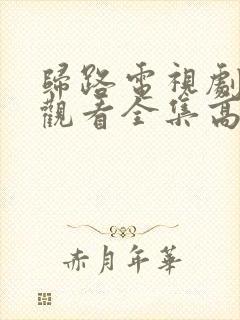 歸路電視劇
觀看全集高
赤月年華